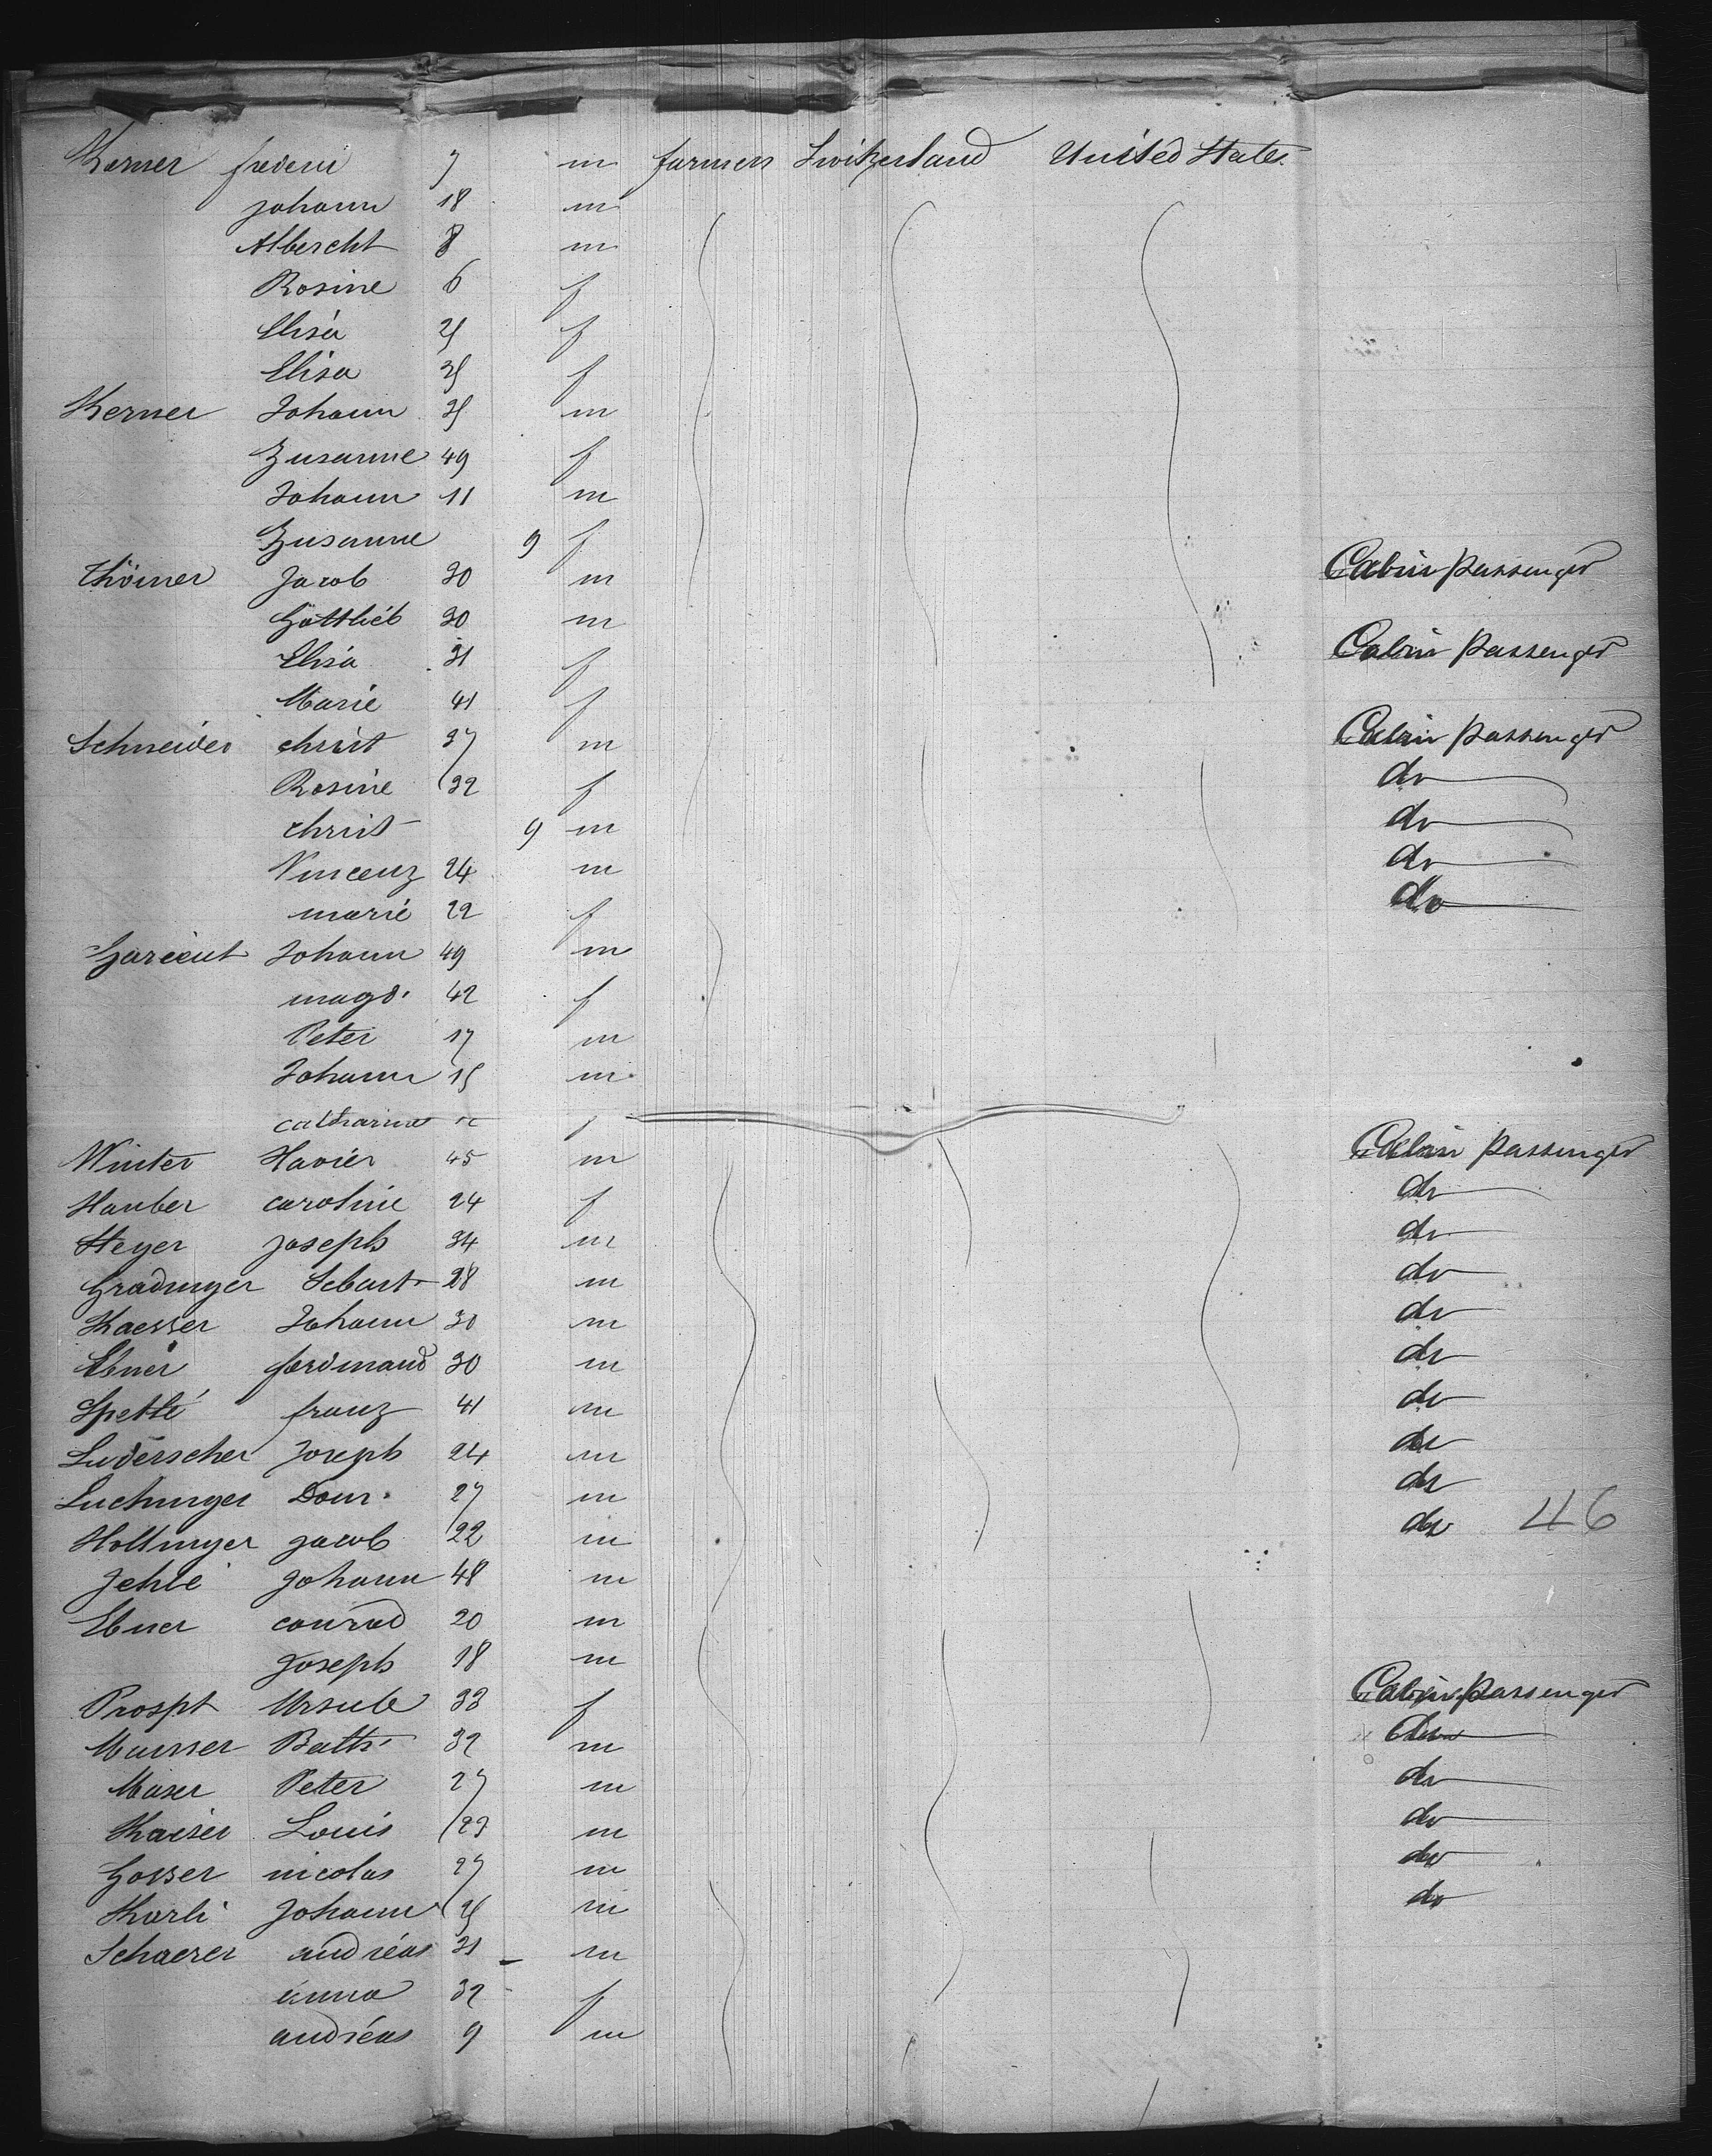 Kerner frederic 7 m farmers Switzerland United States.
Johann 18 m
Albercht 8 m
Rosine 6 f
Elisa 25 f
Elisa 35 f
Kerner Johann 35 m
Zusanne 49 f
Johann 11 m
Zusanne 9 f
Jacob 30 m Cabin passenger
Gottlieb 30 m
Elisa 31 f Cabin passenger
Marie 41 f
Schneider christ 37 m Cabin passenger
Rosine 32 f do
christ 9 m do
Vincenz 24 m do
marie 22 f do
Johann 49 m
magd. 42 f
Peter 17 m
Johann 15 m
catharine f
Winter Xavier 45 m Cabin passenger
Hauber caroline 24 f do
Heyer Joseph 34 m do
Gradinger Sebast 28 m do
Kaesser Johann 30 m do
Ebner ferdinand 30 m do
Spetté franz 41 m do
Luderscher Joseph 24 m do
Luchinger Dom. 27 m do
Hollinger Jacob 22 m do 46
Jehle Johann 48 m
Ebner conrad 20 m
Joseph 18 m
Prospt Ursule 33 f Cabin passenger
Mausser Balth. 32 m do
Moser Peter 27 m do
Kaiser Louis 23 m do
Gosser nicolas 27 m do
Karli Johann 25 m do
Schaerer andréas 31 m
anna 32 f
andréas 9 m